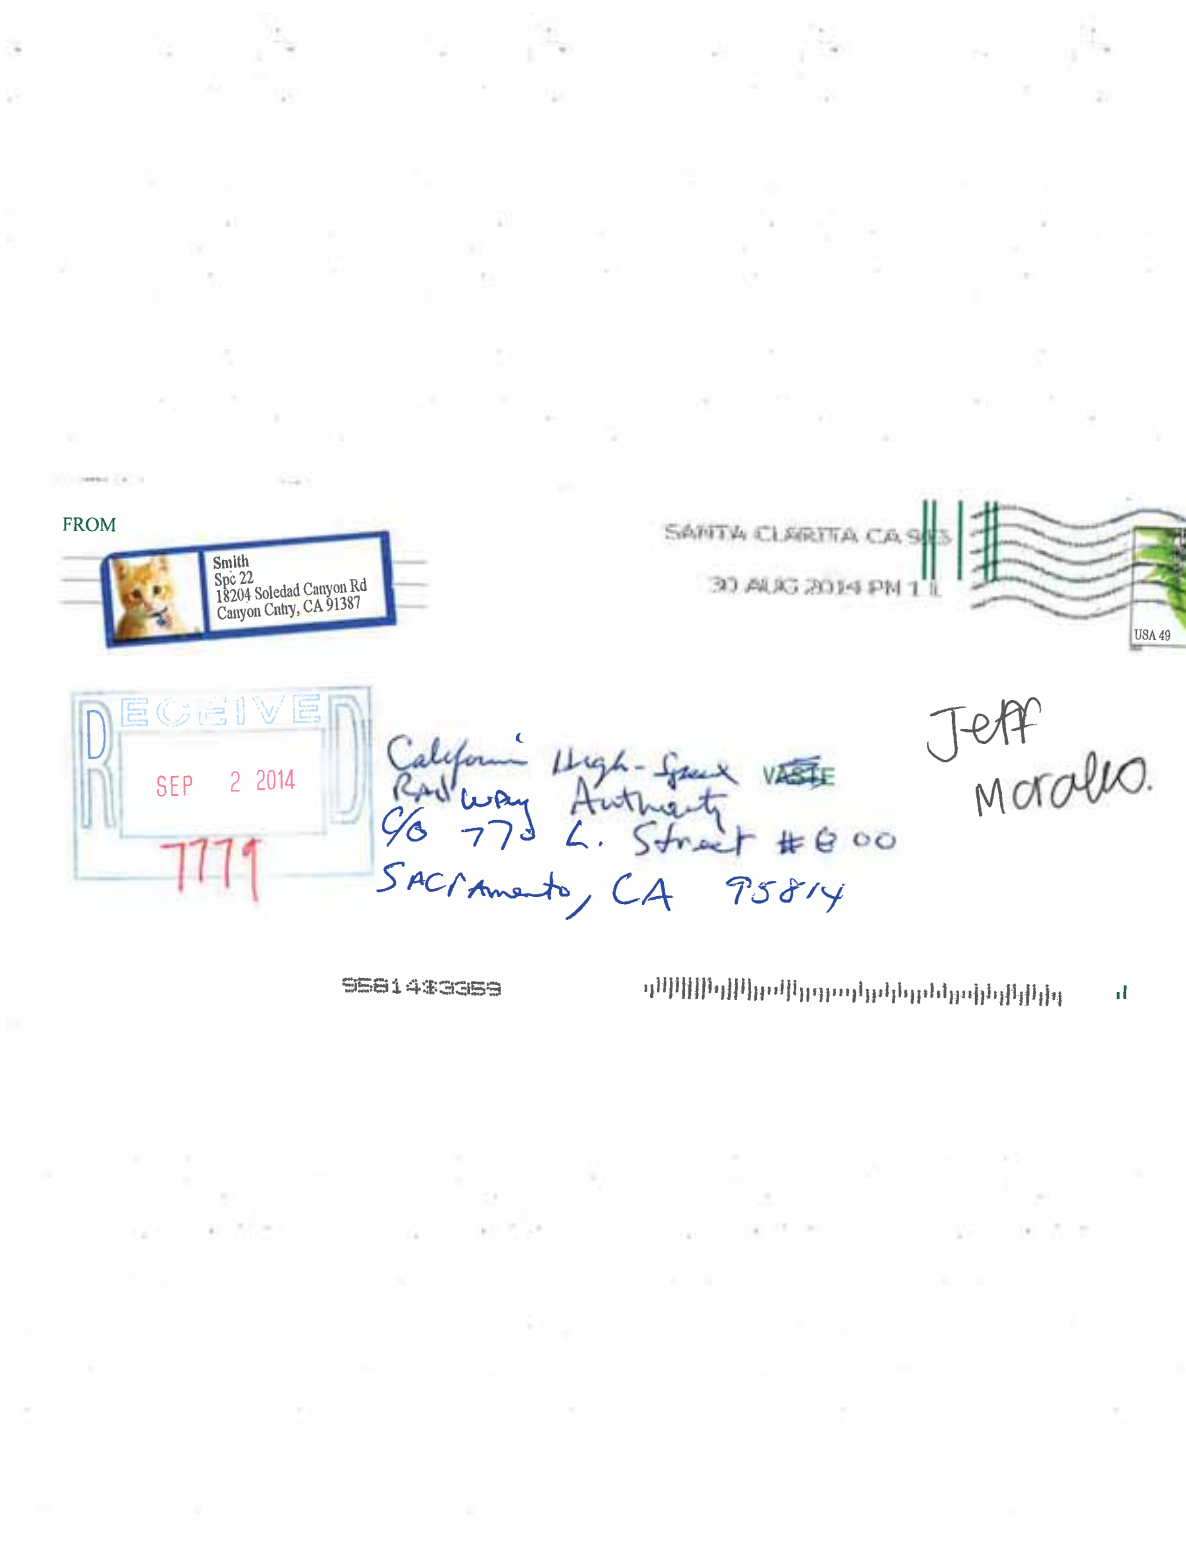 FROM
Smith
Spc 22
18204 Soledad Canyon Rd
Canyon Cntry, CA 91387
SANTA CLARITA CA 913
30 AUG 2014 PM 1 L
USA 49
RECEIVED
SEP 2 2014
7779
California High-Speed
Railway Authority
c/o 770 L. Street # 800
SACrAmento, CA 95814
Jeff
Morales.
95814$3359